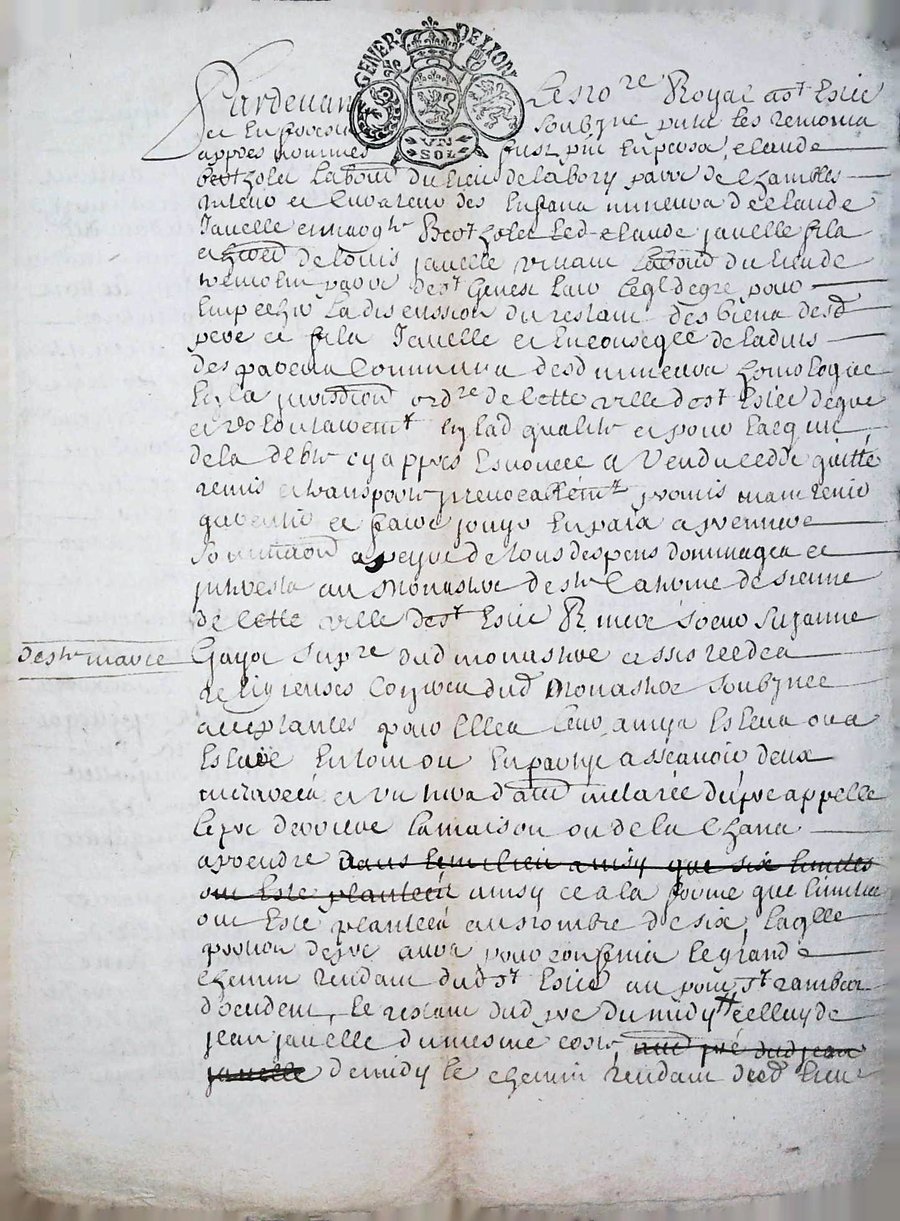 GENER. DE LION
VN
SOL
Pardevant Le no.re Royal a st Estie
et en presence soubzne puis les
appres nommes fust pnt en persone, claude
berthollet Labour du lieu de labory parr de Chambles
tuteur et curateur des enfans mineurs de claude
Jauelle et Berthollet led claude jauelle filz
de louis jauelle vivant Labour du lieu de
parr de st Genest
Empecher La discussion du restant des biens desd
pere et filz Jauelle et en conseqce de ladvis
des parens Communs desd mineurs homologue
En la jurisdiction ordre de cette ville de st Estie de gre
et volontairemt en lad qualite et pour lacquit
de la debte cy appres Enoncee a Vendu cedde quitté
remis et transporte jrrevocablemt promis maintenir
garentir et faire jouyr Enpaix a
a peyne de tous despens dommages et
jnterestz au Monastere de ste Catherine de sienne
de cette ville de st Estie R. mere soeur Suzanne
de ste marie
Gayot supre dud monastere et
Religieuses dud Monastere soubznee
acceptantes pour Elles leurs amys Esleus ou a
Eslire En tout ou En partye a scauoir deux
et un tiers d'autre du pre appelle
le pre derriere la maison ou de la Chana
a prendre dans le milieu ainsy que six limittes
ont Esté planteés ainsy et a la forme que limittes
ont Esté plantees au nombre de six, laqlle
portion de pre aura pour confins le grand
chemin tendant dud st Estie au pont st rambert
d'occident, le restant dud pre du midy celluy de
jean jauelle du mesme costé aud pré dud jean
jauelle de midy le chemin tendant dud lieu